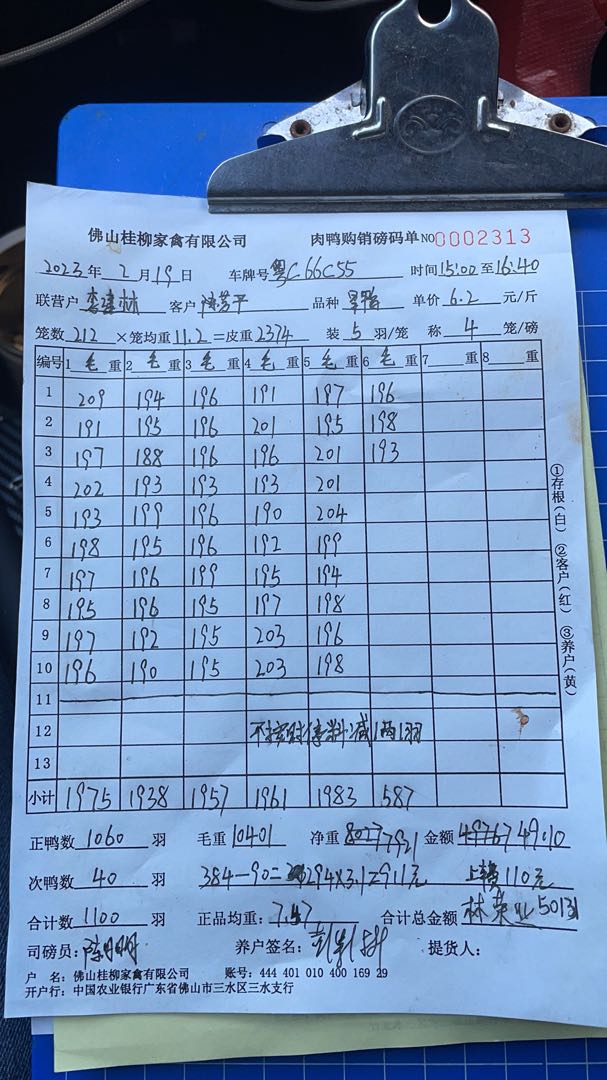 佛山桂柳家禽有限公司 肉鸭购销磅码单 NO 0002313
2023年 2月19日 车牌号 粤C 66C55 时间 15:00 至 16:40
联营户 李建林 客户 平 品种 单价 6.2 元/斤
笼数 212 ×笼均重 11.2 =皮重 2374 装 5 羽/笼 称 4 笼/磅
编号 1 毛 重 2 毛 重 3 毛 重 4 毛 重 5 毛 重 6 毛 重 7 重 8 重
1 209 194 196 191 197 196
2 191 195 196 201 195 198
3 197 188 196 196 201 193
4 202 193 193 193 201
5 193 199 196 190 204
6 198 195 196 192 199
7 197 196 199 195 194
8 195 196 195 197 198
9 197 192 195 203 196
10 196 190 195 203 198
11
12 不按时停料减1两1羽
13
小计 1975 1938 1957 1961 1983 587
正鸭数 1060 羽 毛重 10401 净重 8027 7921 金额 49767 49110
次鸭数 40 羽 384-90= 294×3.1=911元 上楼110元
合计数 1100 羽 正品均重: 7.47 合计总金额 林荣业 50131
司磅员: 陈明明 养户签名: 提货人:
户 名: 佛山桂柳家禽有限公司 账号: 444 401 010 400 169 29
开户行: 中国农业银行广东省佛山市三水区三水支行
①存根(白) ②客户(红) ③养户(黄)